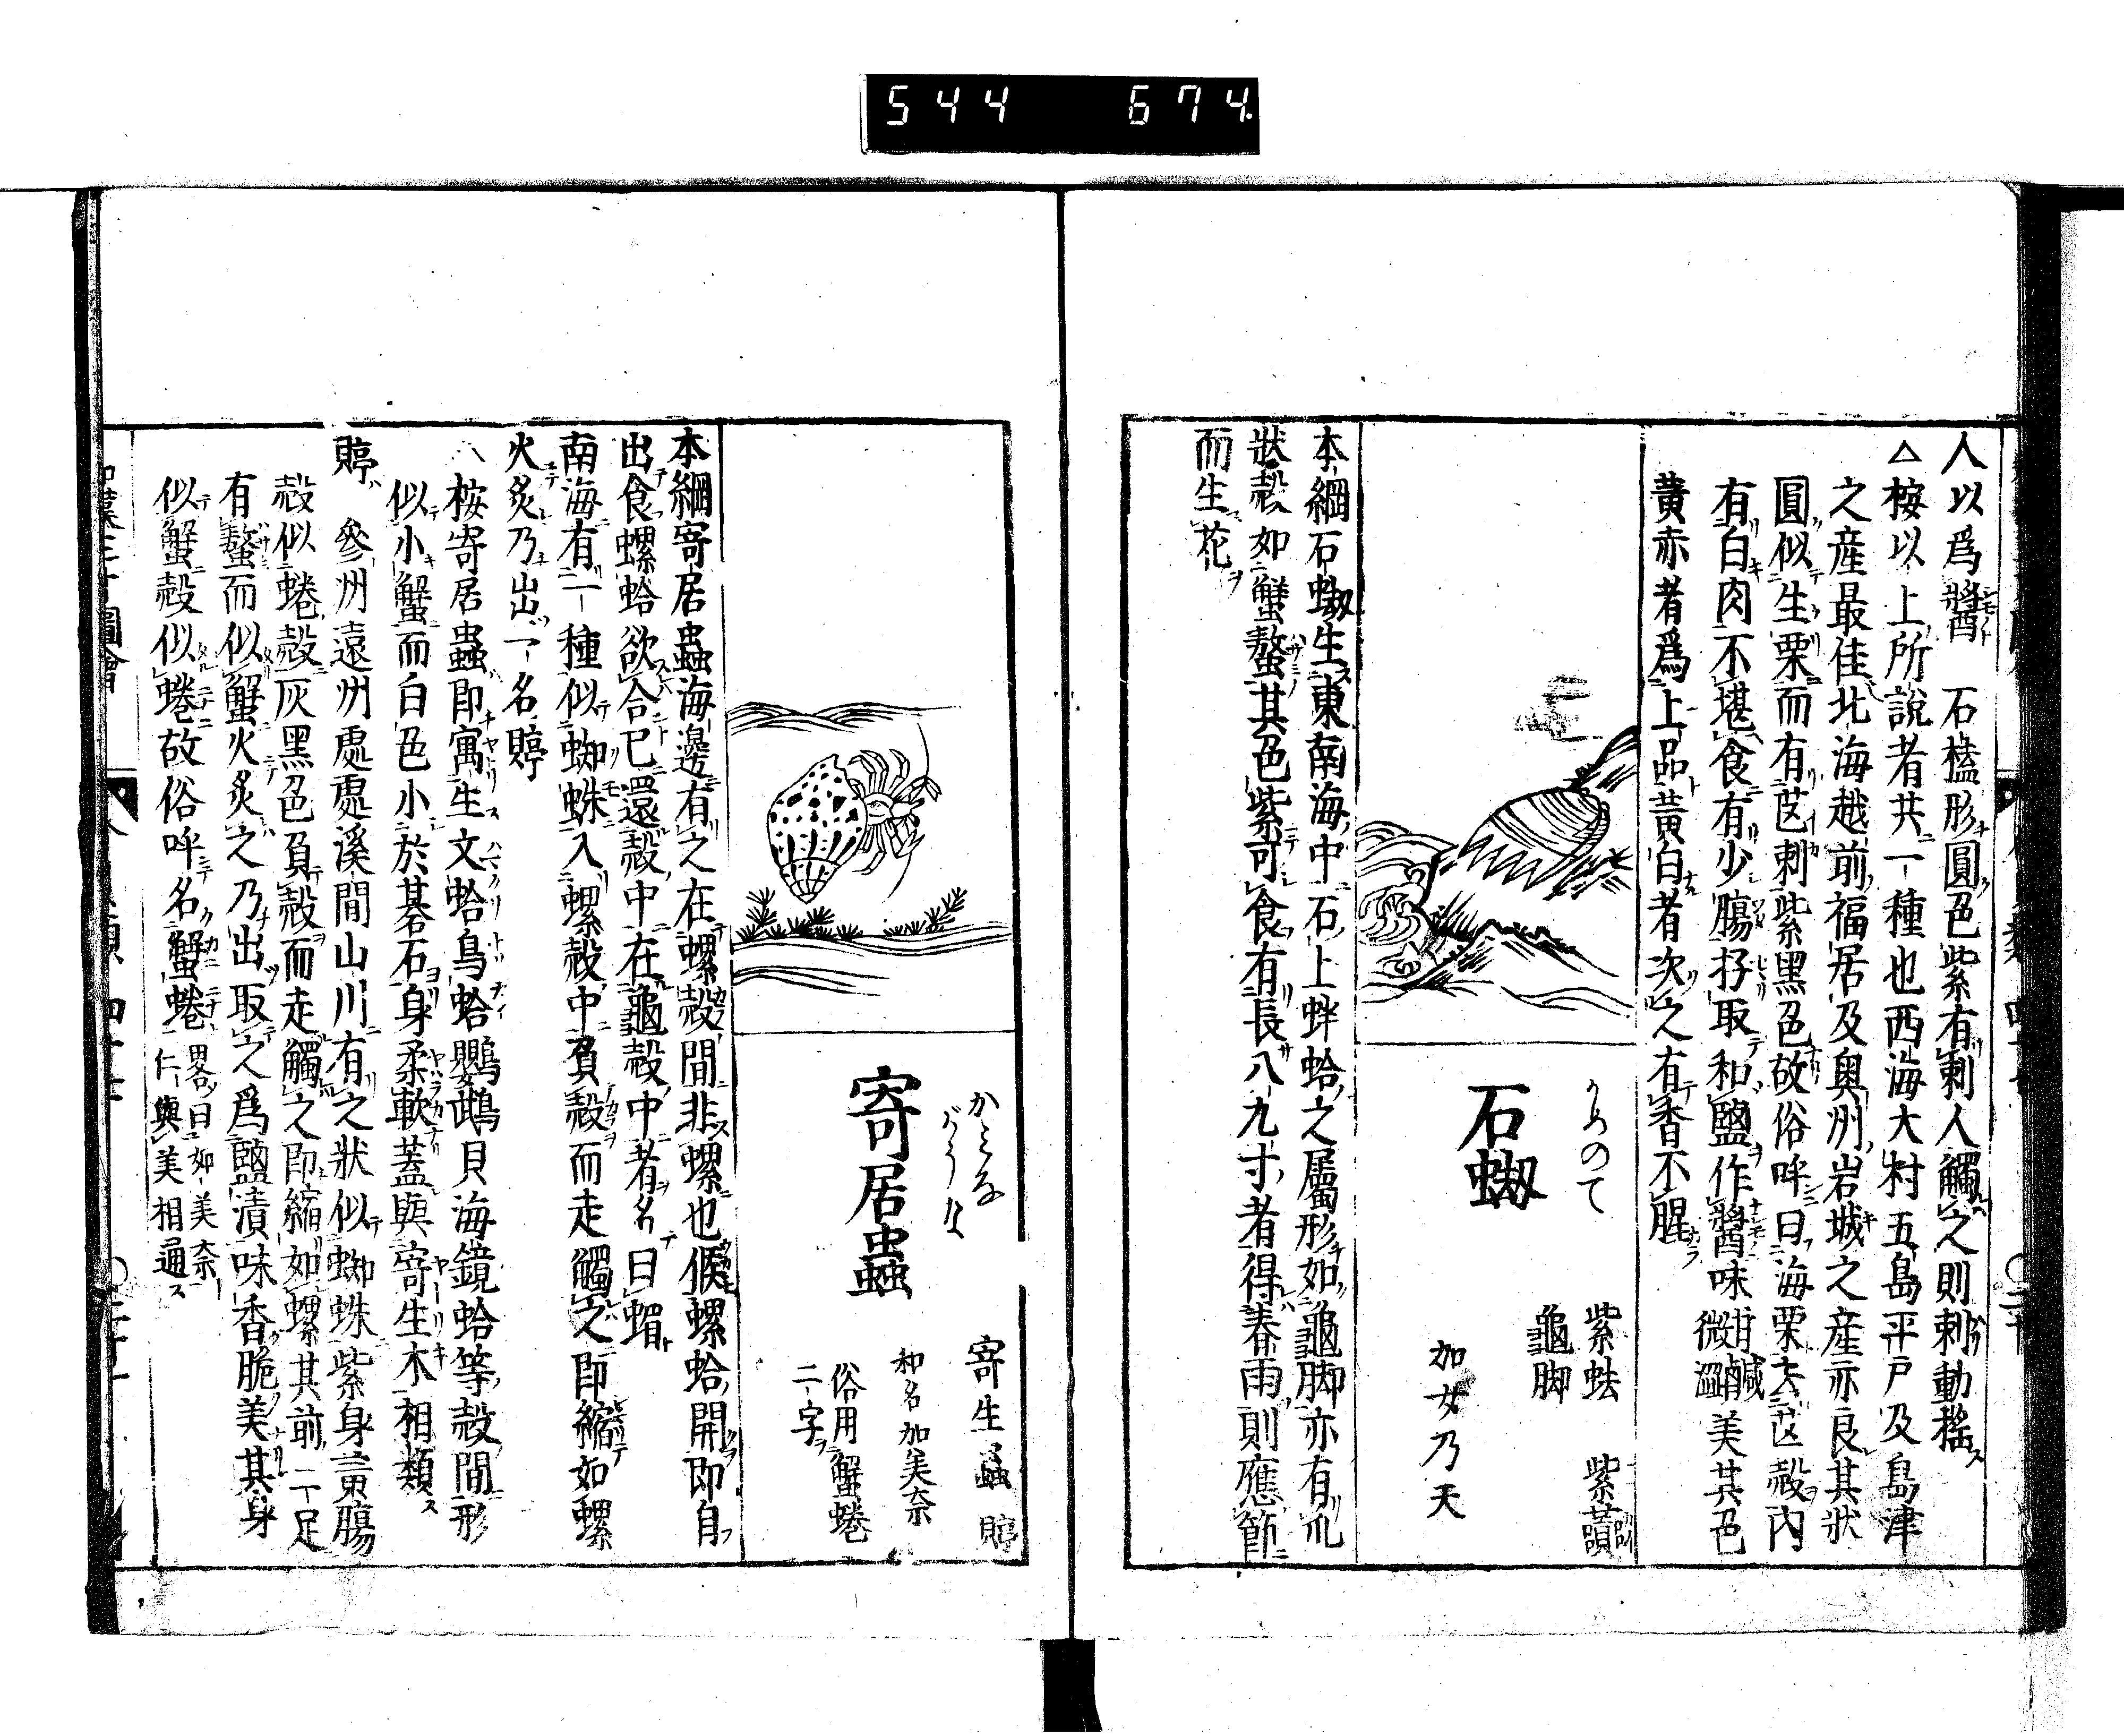 544 674
人以爲醬 石榼形圓色紫有刺人觸之則刺動揺
△桉以上所說者共一種也西海大村五島平戸及島津
之産最佳北海越前福居及奥州岩城之産亦良其狀
圓似生栗而有芒刺紫黑色故俗呼曰海栗去芒殻内
有白肉不堪食有少膓抒取和鹽作醬味甘鹹微澀美其色
黄赤者爲上品黄白者次之有香不腥
石蜐
かめのて
紫蚨 紫𧄔
龜脚
加女乃天
本綱石蜐生東南海中石上蚌蛤之屬形如龜脚亦有爪
狀殻如蟹螯其色紫可食有長八九寸者得春雨則應節
而生花
寄居蟲
かみな
がうな
寄生蟲 䝄
和名加美奈
俗用蟹蜷
二字
本綱寄居蟲海邊有之在螺殻間非螺也候螺蛤開即自
出食螺蛤欲合已還殻中在龜殻中者名曰蝐
南海有一種似蜘蛛入螺殻中負殻而走觸之即縮如螺
火炙乃出一名䝄
桉寄居蟲即寓生文蛤鳥蛤鸚鵡貝海鏡蛤等殻間形
似小蟹而白色小於碁石身柔軟蓋與寄生木相類
䝄 參州遠州處處溪間山川有之狀似蜘蛛紫身青膓
殻似蜷殻灰黑色負殻而走觸之即縮如螺其前二足
有螯而似蟹火炙之乃出取之爲鹽漬味香脆美其身
似蟹殻似蜷故俗呼名蟹蜷畧曰如美奈仁與美相通